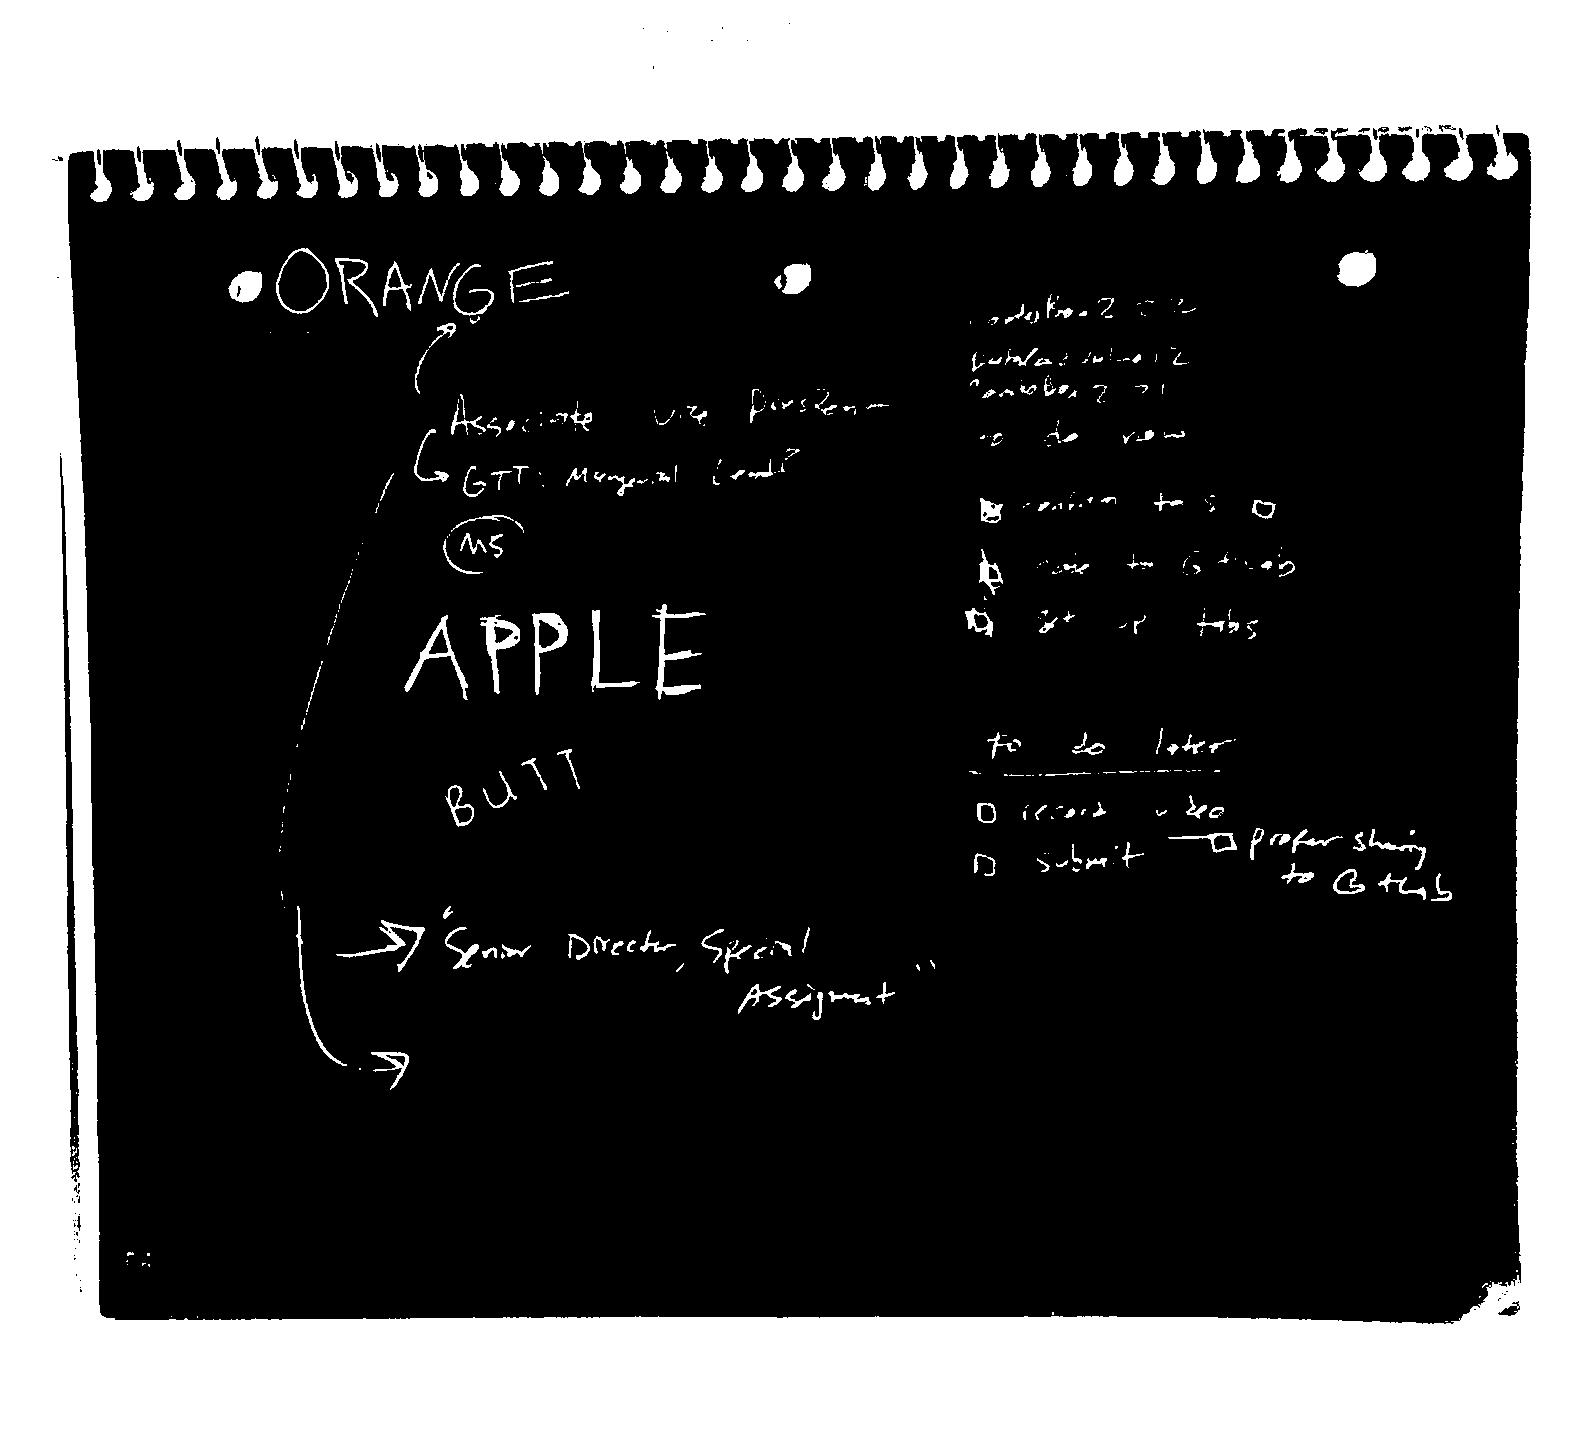 ORANGE
Associate Vice
GTT: Managerial Lead?
M5
APPLE
BUTT
"Senior Director, Special
Assignment"
to do now
confirm
to GitLab
set up tabs
to do later
record video
submit
prefer sharing
to GitLab